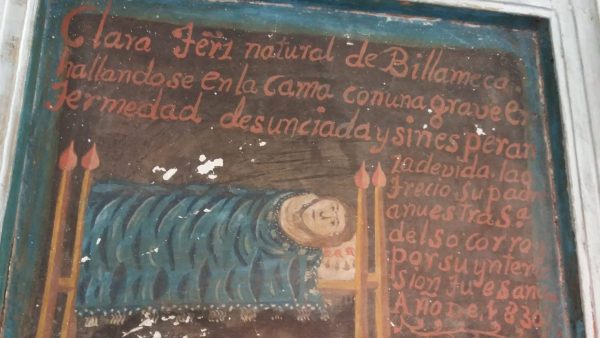 Clara Ferz natural de Billameca.
hallandose en la cama con una grave en
fermedad desunciada y sin es peran
za de vida. la o
frecio su padr
a nuestra s.a
del so corro,
por su ynter
sion fue sana
Año De 1830